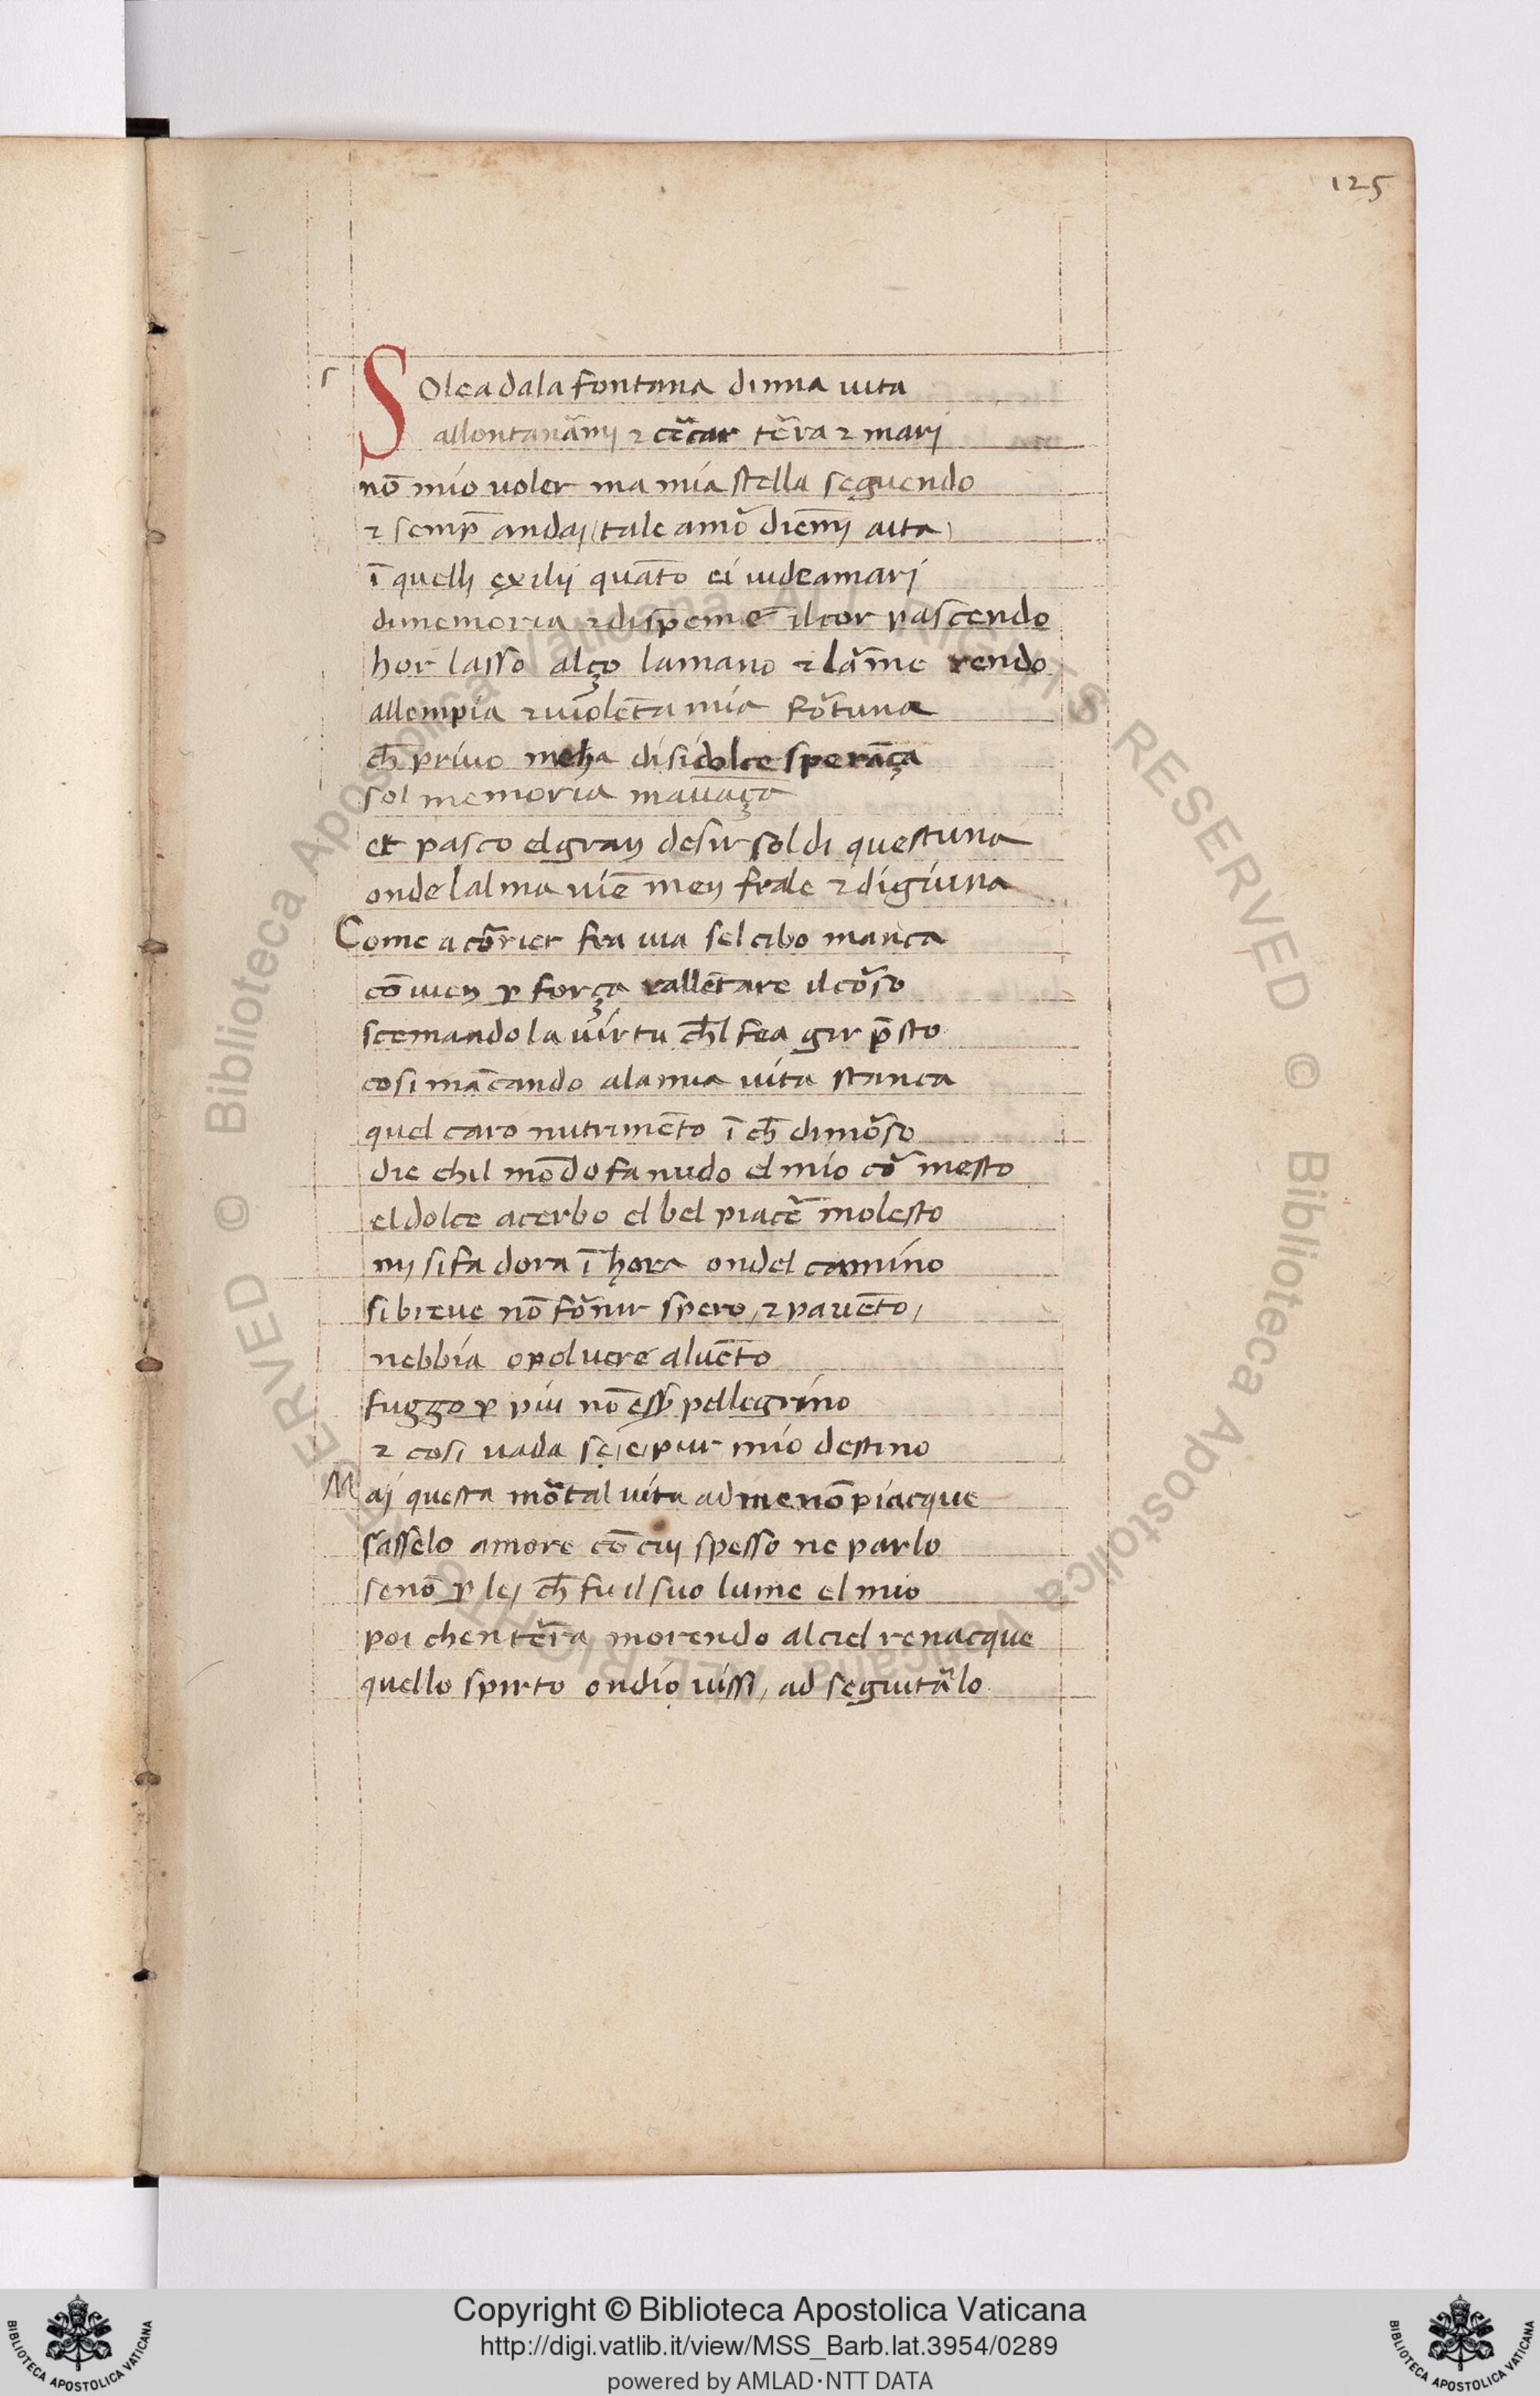 125
s
SOlea dala fontana dimia uita
allontanãmj ⁊ cẽcar tẽra ⁊ marj
nõ mio uoler ma mia stella seguendo
⁊ semp̄ andaj (tale amõ diem̃j aita)
ĩ quellj exilij quãto ei uideamarj
dimemoria ⁊ dispeme ilcor pascendo
hor lasso alço lamano ⁊ lãme rendo
allempia ⁊ uiolẽta mia fõtuna
ch̄ priuo meha disidolce sperãça
sol memoria mauãça
et pasco elgran desir sol di questuna
onde lalma uiẽ men frale ⁊ digiuna
Come a cõrier fra uia sel cibo manca
cõuien ꝑ força rallẽtare il cõso
scemando la uirtu ch̄l fea gir p̄sto
cosi mãcando ala mia uita stanca
quel caro nutrimẽto ĩ ch̄ dimõso
die chil mõdo fa nudo el mio cõ mesto
el dolce acerbo el bel piacẽ molesto
mj si fa dora ĩ hora ondel camino
si breue nõ fõnir spero, ⁊ pauẽto,
nebbia o poluere al uẽto
fuggo ꝑ piu nõ ess̃ pellegrino
⁊ cosi uada se, e, pur mio destino
Maj questa mõtal uita ad me nõ piacque
sasselo amore cõ cuj spesso ne parlo
se nõ ꝑ lej ch̄ fu il suo lume el mio
poi chen tẽra morendo al ciel renacque
quello spirto ondio uissi, ad seguitãlo
© Biblioteca Apostolica Vaticana ALL RIGHTS RESERVED
© Biblioteca Apostolica Vaticana ALL RIGHTS RESERVED
Copyright © Biblioteca Apostolica Vaticana
http://digi.vatlib.it/view/MSS_Barb.lat.3954/0289
powered by AMLAD·NTT DATA
BIBLIOTECA APOSTOLICA VATICANA
BIBLIOTECA APOSTOLICA VATICANA